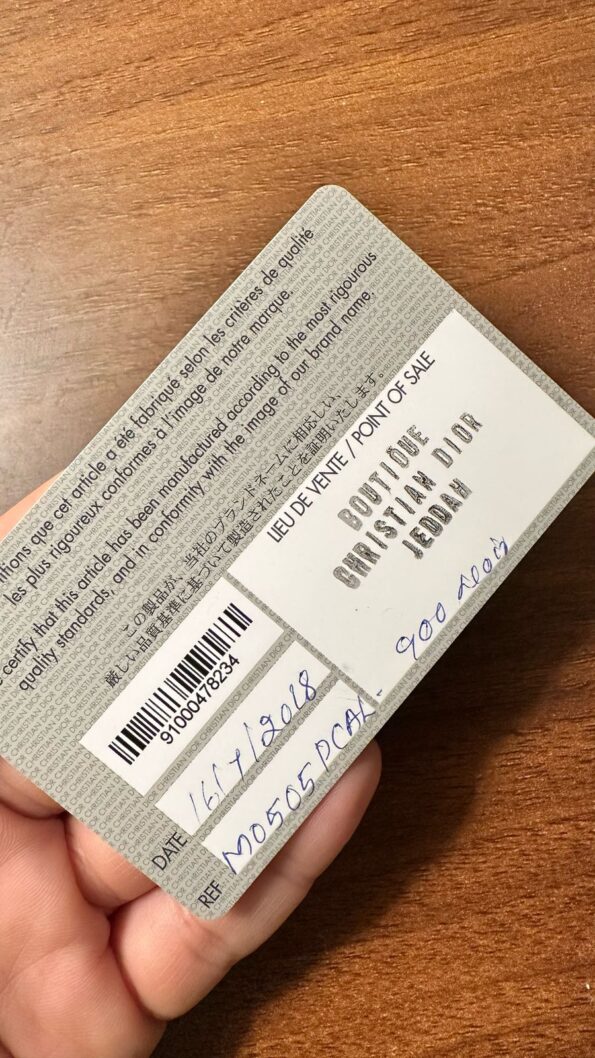 itions que cet article a été fabriqué selon les critères de qualité
les plus rigoureux conformes à l'image de notre marque.
certify that this article has been manufactured according to the most rigourous
quality standards, and in conformity with the image of our brand name.
この製品が、当社のブランドネームに相応しい、
厳しい品質基準に基づいて製造されたことを証明いたします。
LIEU DE VENTE / POINT OF SALE
BOUTIQUE
CHRISTIAN DIOR
JEDDAH
900 Noir
91000478234
DATE 16/7/2018
REF M0505PCAL-